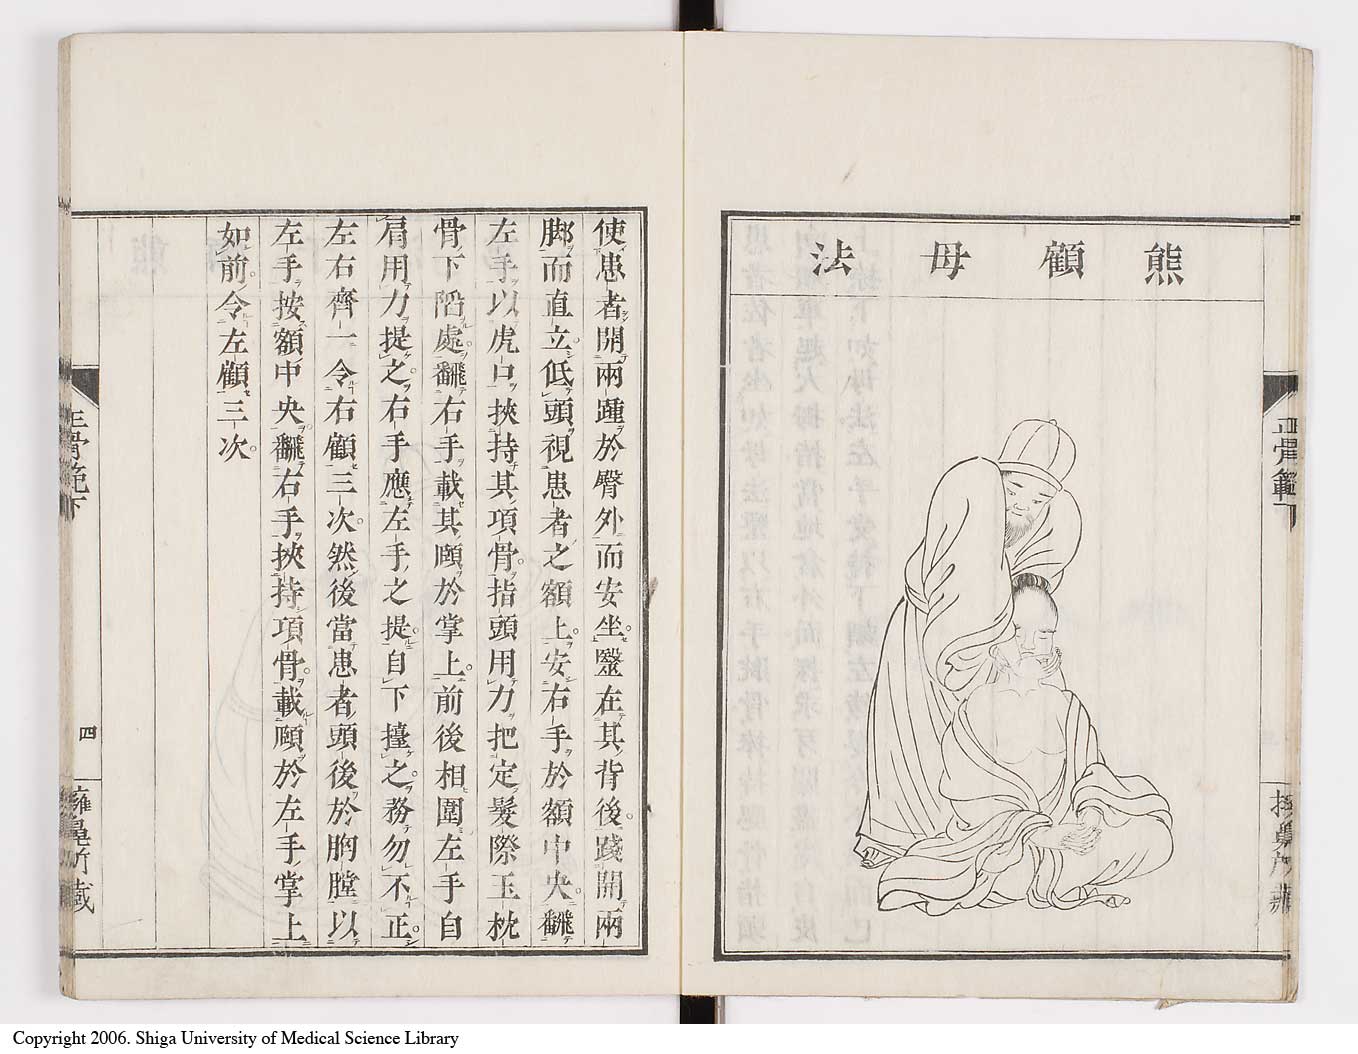 熊顧母法
正骨範
使患者開兩踵於臀外而安坐毉在其背後踐開兩
脚而直立低頭視患者之額上安右手於額中央飜
左手以虎口挾持其項骨指頭用力把定髮際玉枕
骨下陷處飜右手載其頤於掌上前後相圍左手自
肩用力提之右手應左手之提自下擡之務勿不正
左右齊一令右顧三次然後當患者頭後於胸膛以
左手按額中央飜右手挾持項骨載頤於左手掌上
如前令左顧三次
正骨範下
四
Copyright 2006. Shiga University of Medical Science Library